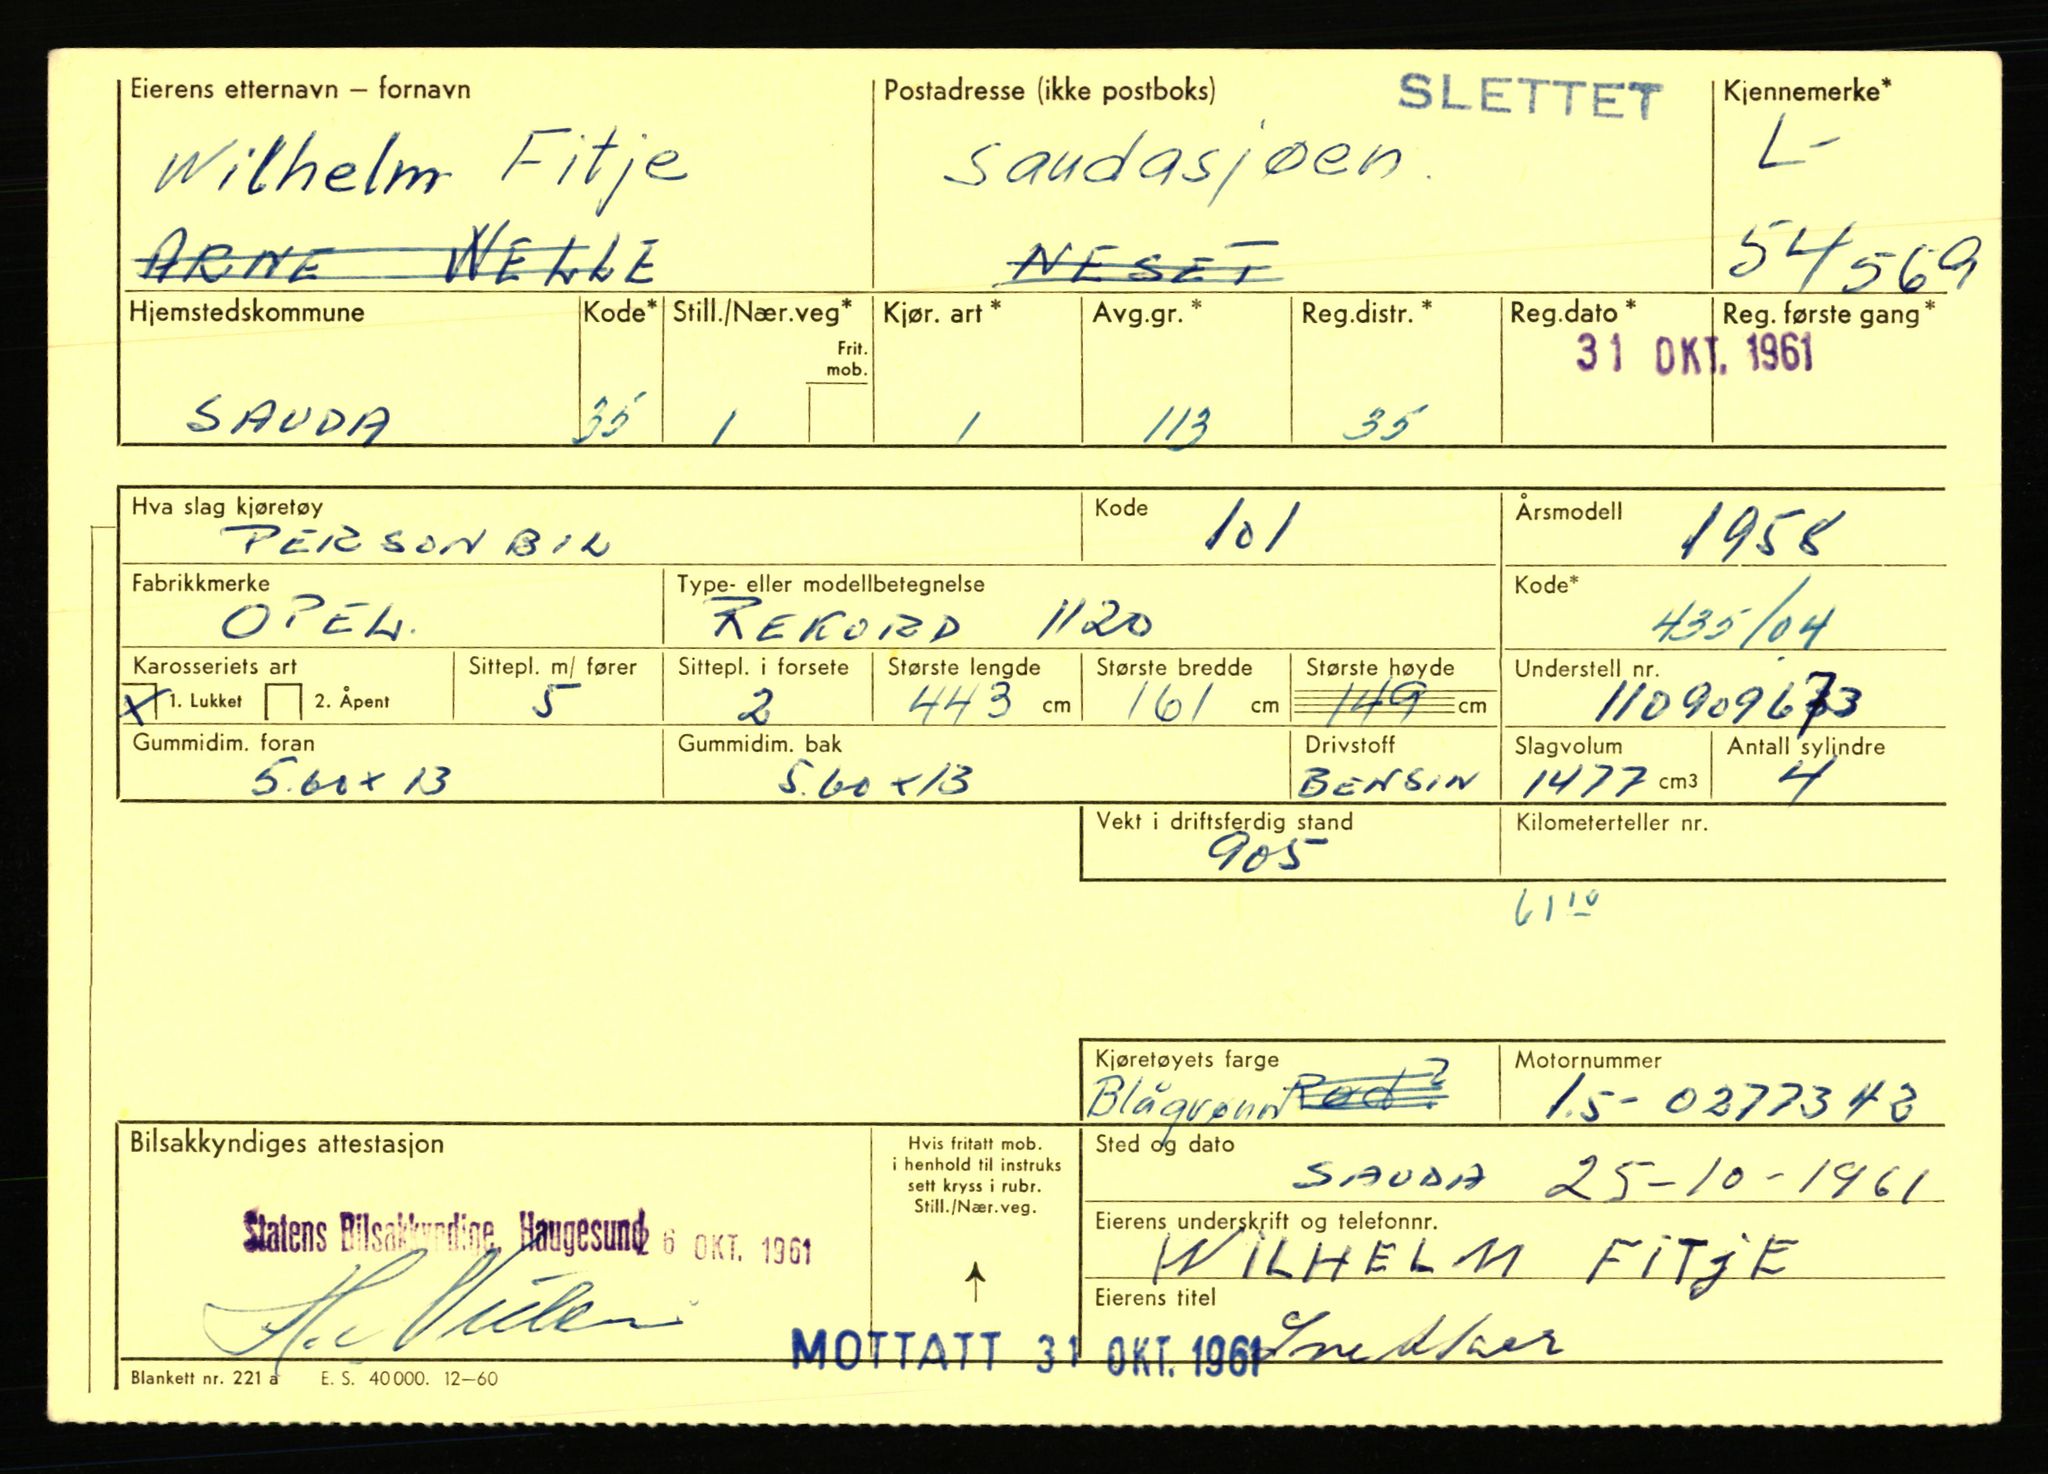 Eierens etternavn – fornavn
Wilhelm Fitje
ARNE NELLE
Postadresse (ikke postboks)
Saudasjøen.
NESET
SLETTET
Kjennemerke*
L-
54569
Hjemstedskommune
SAUDA
Kode*
35
Still./Nær.veg*
1
Frit.
mob.
Kjør. art *
1
Avg.gr. *
113
Reg.distr. *
35
Reg.dato *
Reg. første gang*
31 OKT. 1961
Hva slag kjøretøy
PERSONBIL
Kode
101
Årsmodell
1958
Fabrikkmerke
OPEL.
Type- eller modellbetegnelse
REKORD 1120
Kode*
435/04
Karosseriets art
X 1. Lukket 2. Åpent
Sittepl. m/ fører
5
Sittepl. i forsete
2
Største lengde
443 cm
Største bredde
161 cm
Største høyde
149 cm
Understell nr.
110909673
Gummidim. foran
5.60 x 13
Gummidim. bak
5.60 x 13
Drivstoff
BENSIN
Slagvolum
1477 cm3
Antall sylindre
4
Vekt i driftsferdig stand
905
Kilometerteller nr.
61 10
Kjøretøyets farge
Blågrønn Rød?
Motornummer
1.5- 0277342
Bilsakkyndiges attestasjon
Statens Bilsakkyndige, Haugesund
26 OKT. 1961
Hvis fritatt mob.
i henhold til instruks
sett kryss i rubr.
Still./Nær.veg.
Sted og dato
SAUDA 25-10-1961
Eierens underskrift og telefonnr.
WILHELM FITjE
Eierens titel
Snekker
MOTTATT 31 OKT. 1961
Blankett nr. 221 a E. S. 40 000. 12–60